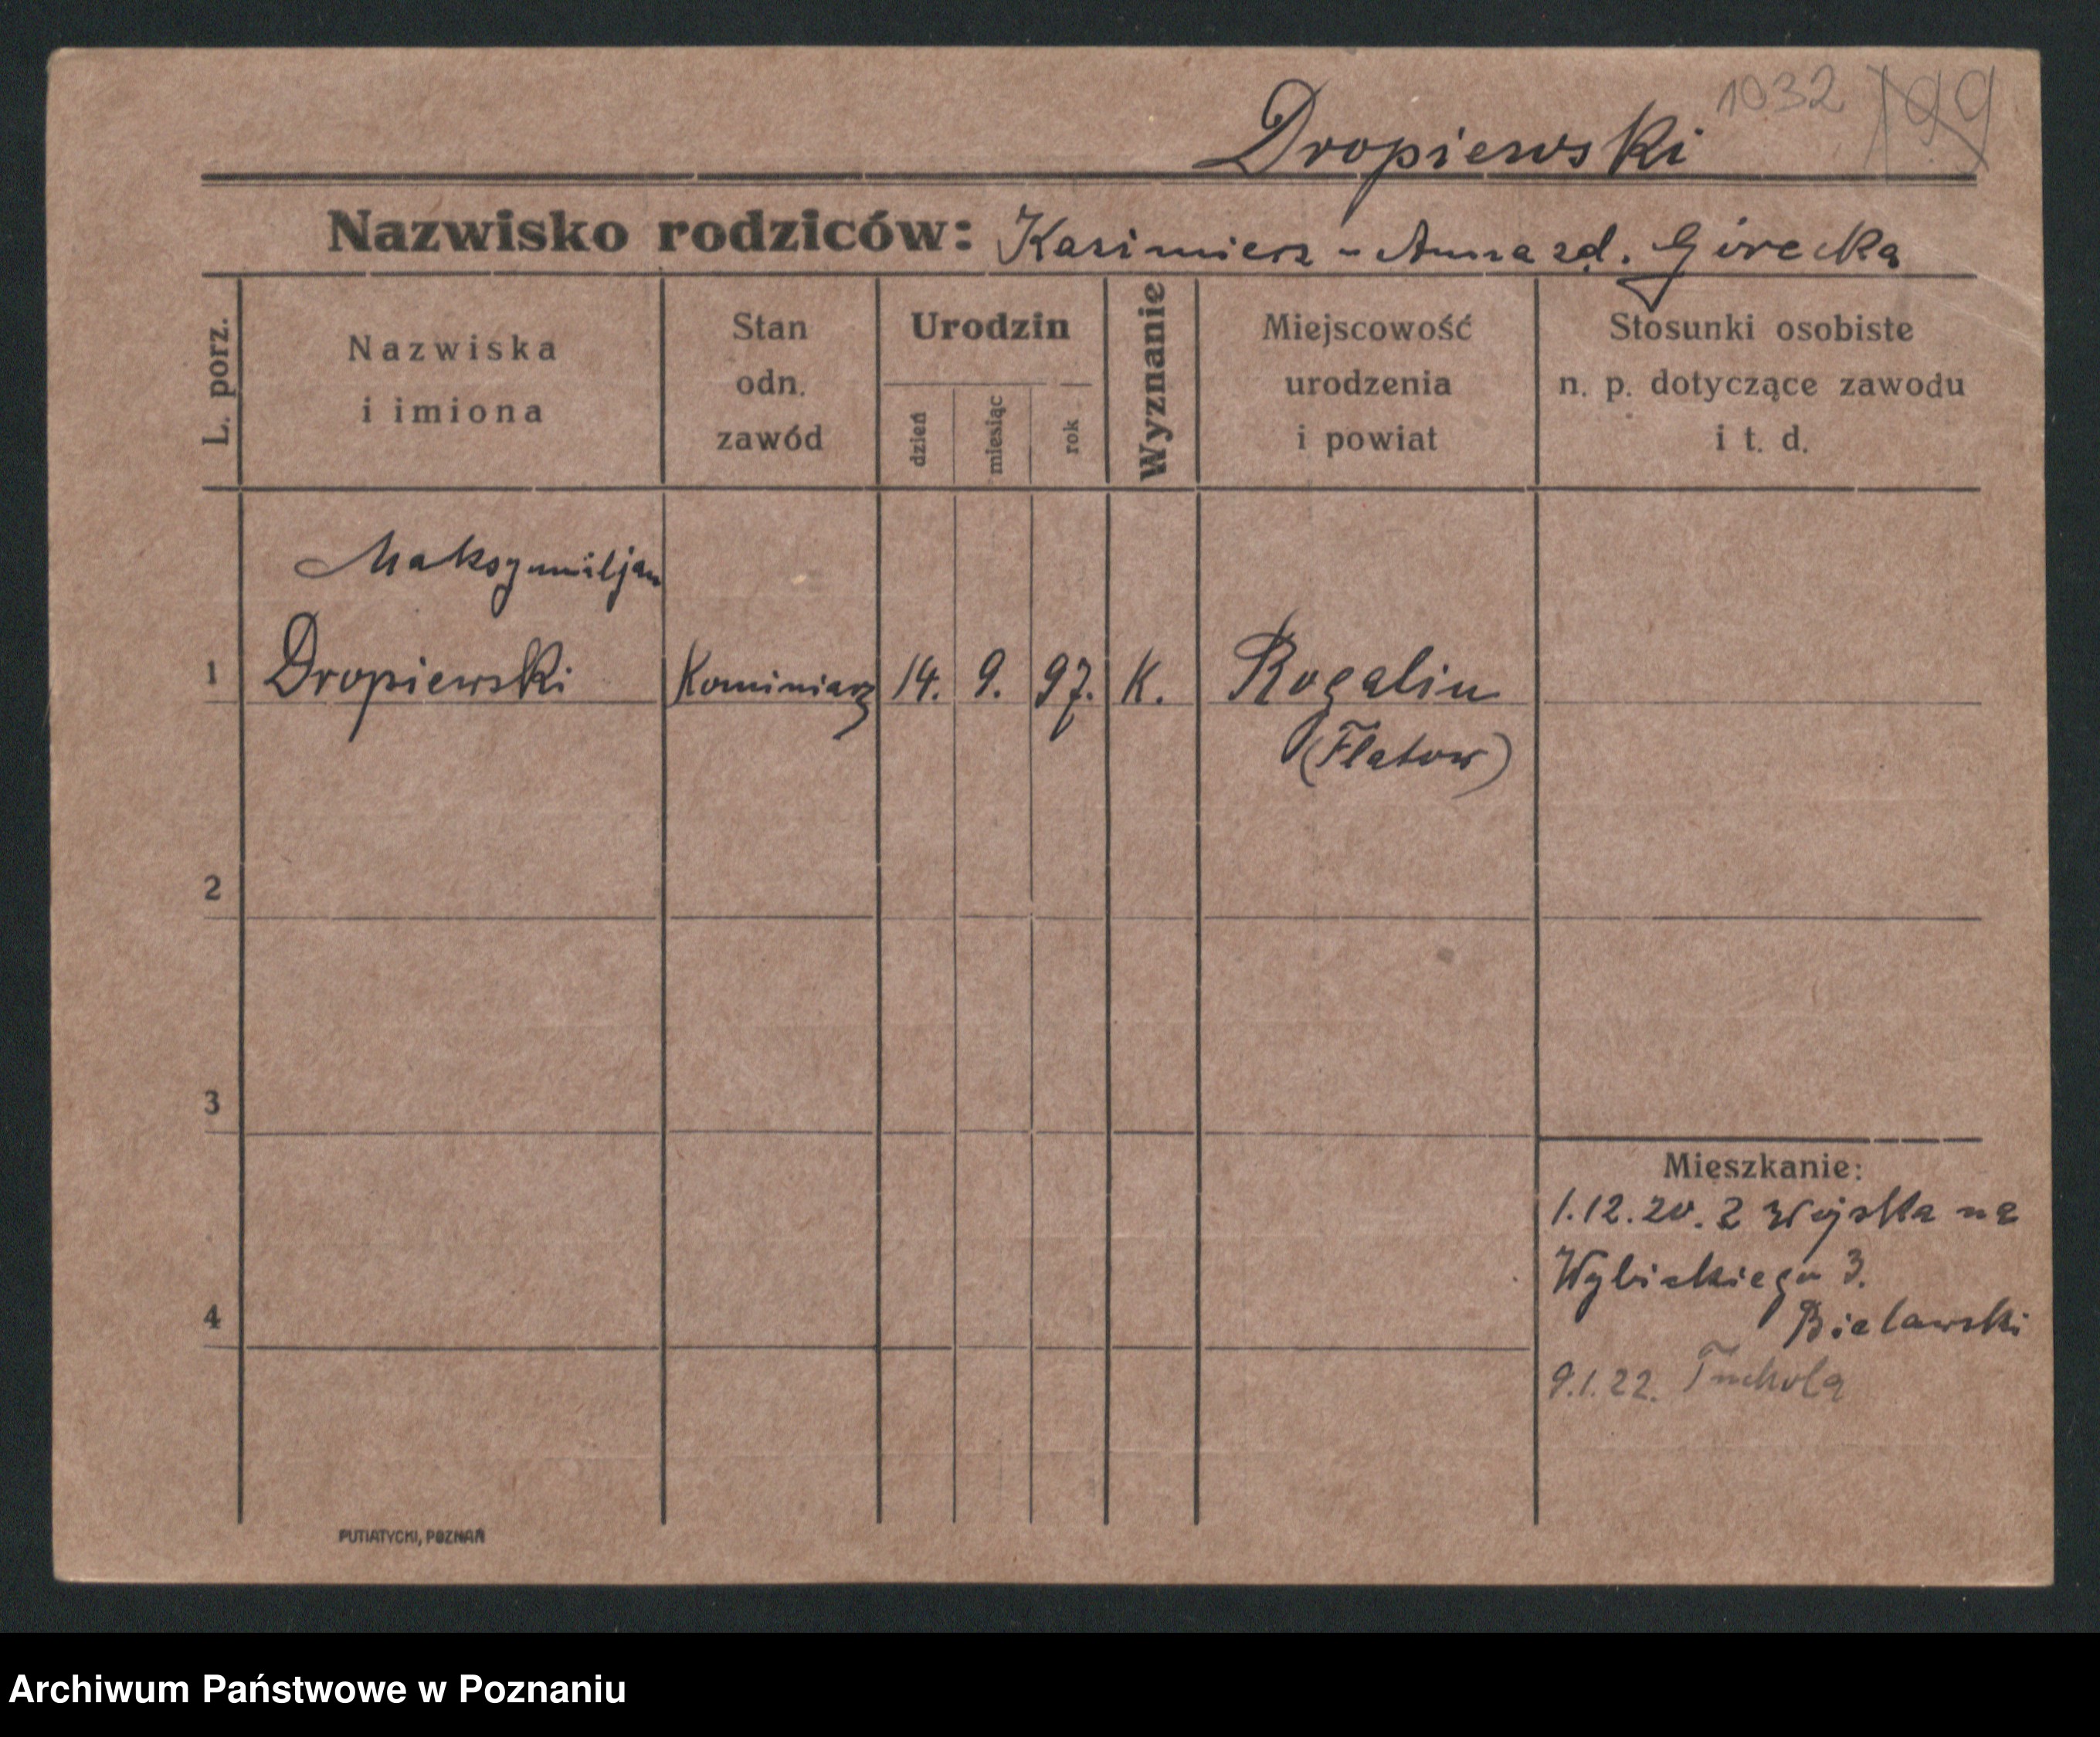 1032 199
Dropiewski
Nazwisko rodziców: Kazimierz - Anna zd. Górecka
L. porz.
Nazwiska
i imiona
Stan
odn.
zawód
Urodzin
dzień
miesiąc
rok
Wyznanie
Miejscowość
urodzenia
i powiat
Stosunki osobiste
n. p. dotyczące zawodu
i t. d.
Maksymiljan
1 Dropiewski Kominiarz 14. 9. 97. K. Rogalin
(Flatow)
2
3
4
Mieszkanie:
1.12.20. z Wojska na
Wybickiego 3.
Bielawski
9.1.22. Tuchola
PUTIATYCKI, POZNAŃ
Archiwum Państwowe w Poznaniu